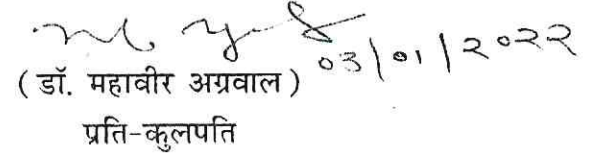 03/01/2022
( डॉ. महावीर अग्रवाल )
प्रति-कुलपति